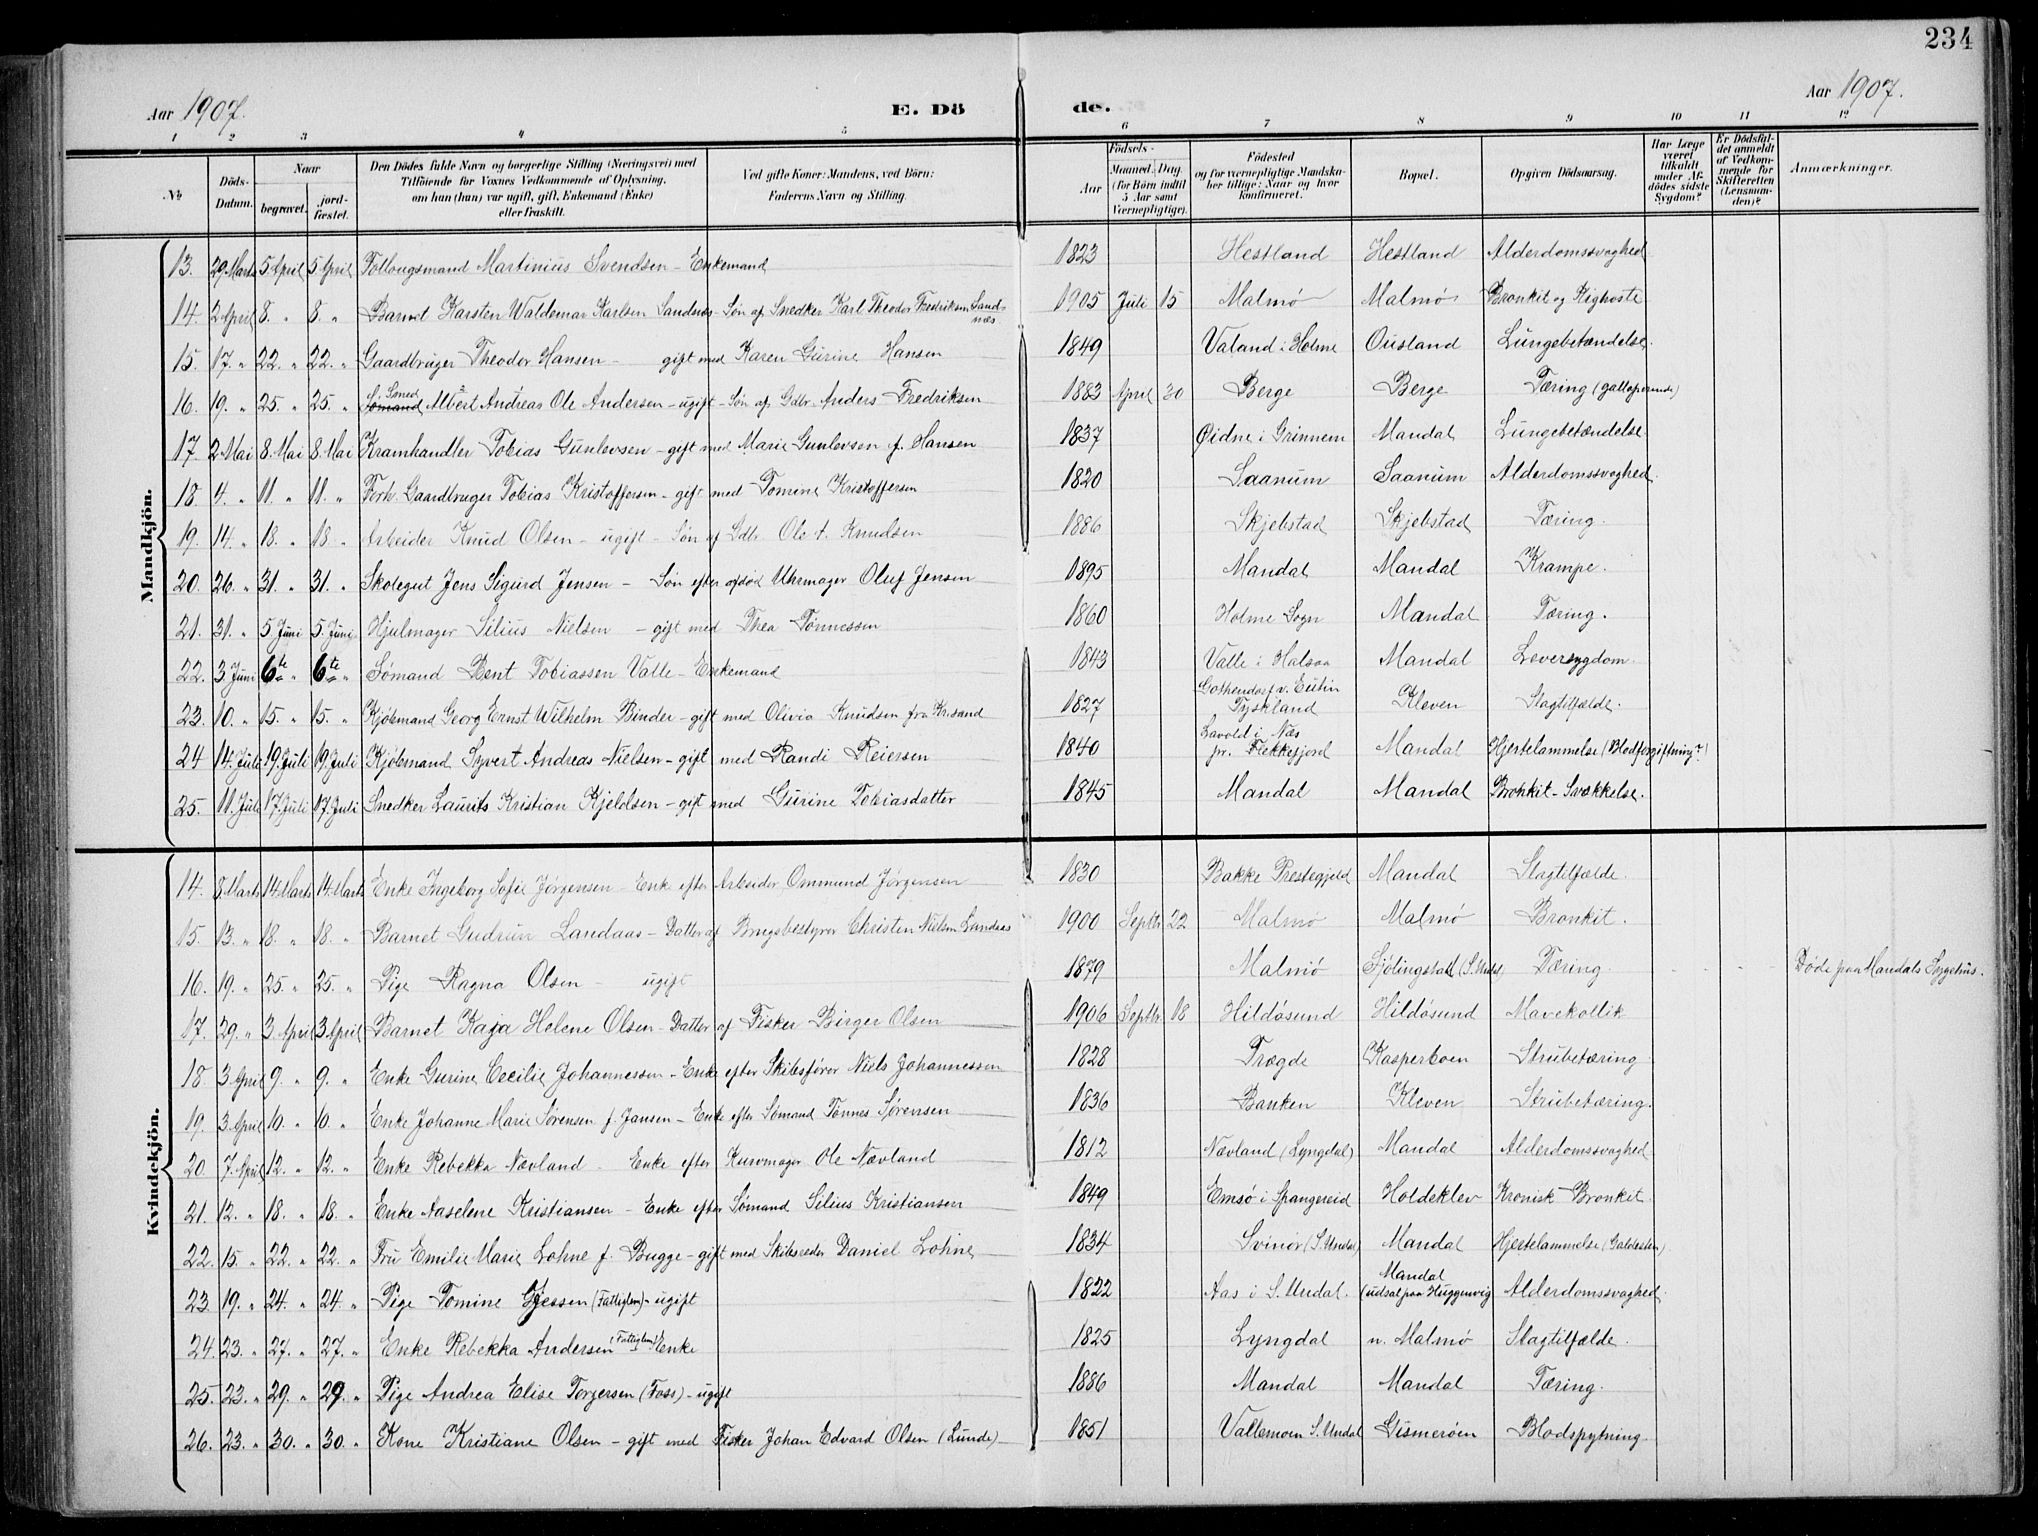 234
Aar 1907.
E. Dö
de.
Aar 1907.
1 2 3 4 5 6 7 8 9 10 11 12
No
Döds-Datum.
Naar
begravet.
jord-fæstet.
Den Dödes fulde Navn og borgerlige Stilling (Næringsvei) med
Tilföiende for Voxnes Vedkommende af Oplysning,
om hun (han) var ugift, gift, Enkemand (Enke)
eller fraskilt.
Ved gifte Koner: Mandens, ved Börn:
Faderens Navn og Stilling.
Födsels-
Aar
Maaned. Dag.
(for Börn indtil
5 Aar samt
Værnepligtige).
Födested
og for værnepligtige Mandska-
ber tillige: Naar og hvor
konfirmeret.
Bopæl.
Opgiven Dödsaarsag.
Har Læge
været
tilkaldt
under Af-
dödes sidste
Sygdom?
Er Dödsfal-
det anmeldt
af Vedkom-
mende for
Skifteretten
(Lensman-
den)?
Anmærkninger.
Mandkjön.
13. 29. Marts 5 April 5 April Follougsmand Martinius Svendsen - Enkemand 1823 Hestland Hestland Alderdomssvaghed
14. 2 April 8. " 8. " Barnet Karsten Waldemar Karlsen Sandnæs - Søn af Snedker Karl Theodor Fredriksen Sandnæs 1905 Juli 15 Malmø Malmø Bronkit og Kighoste
15. 17. " 22. " 22. " Gaardbruger Theodor Hansen - gift med Karen Gurine Hansen 1849 Valand i Holme Ousland Lungebetændelse.
16. 19. " 25. " 25. " Sømand Smed Albert Andreas Ole Andersen - ugift - Søn af Gdbr. Anders Fredriksen 1883 April 30 Berge Berge Tæring (galloperende)
17. 2 Mai 8. Mai 8. Mai Kramhandler Tobias Gunlevsen - gift med Marie Gunlevsen f. Hansen 1837 Øidne i Grinnem Mandal Lungebetændelse.
18. 4. " 11. " 11. " Forh. Gaardbruger Tobias Kristoffersen - gift med Tomine Kristoffersen 1820 Saanum Saanum Alderdomssvaghed.
19. 14. " 18. " 18. " Arbeider Knud Olsen - ugift - Søn af Gdbr. Ole A. Knudsen 1886 Skjebstad Skjebstad Tæring.
20. 26. " 31. " 31. " Skolegut Jens Sigurd Jensen - Søn efter afdød Uhrmager Oluf Jensen 1895 Mandal Mandal Krampe.
21. 31. " 5. Juni 5. Juni Hjulmager Silius Nielsen - gift med Thea Tønnessen 1860 Holme Sogn Mandal Tæring.
22. 3. Juni 6te " 6te " Sømand Bent Tobiassen Valle - Enkemand 1843 Valle i Halsaa Mandal Leversygdom.
23. 10. " 15. " 15. " Kjøbmand Georg Ernst Wilhelm Binder - gift med Olivia Knudsen fra Krisand 1827 Gothendorf v. Eutin Tyskland Kleven Slagtilfælde.
24 14. Juli 19. Juli 19. Juli Kjøbmand Syvert Andreas Nielsen - gift med Randi Reiersen 1840 Lavold i Næs pr. Flekkefjord Mandal Hjertelammelse (Blodforgiftning?)
25. 11. Juli 17. Juli 17. Juli Snedker Laurits Kristian Kjeldsen - gift med Gurine Tobiasdatter 1845 Mandal Mandal Bronkit - Svækkelse.
Kvindekjön.
14. 8. Marts 14. Marts 14. Marts Enke Ingeborg Sofie Jørgensen - Enke efter Arbeider Ommund Jørgensen 1830 Bakke Prestegjeld Mandal Slagtilfælde.
15. 13. " 18. " 18. " Barnet Gudrun Landaas - Datter af Brugsbestyrer Christen Nielsen Landaas 1900 Septbr 22 Malmø Malmø Bronkit.
16. 19. " 25. " 25. " Pige Ragna Olsen - ugift 1879 Malmø Sjølingstad (S. Undal) Tæring. Døde paa Mandals Sygehus.
17. 29. " 3. April 3. April Barnet Kaja Helene Olsen - Datter af Fisker Birger Olsen 1906 Septbr 18 Hildøsund Hildøsund Mavekollik
18 3. April 9. " 9. " Enke Gurine Cecilie Johannessen - Enke efter Skibsfører Niels Johannessen 1828 Trægde Kasperboen Strubetæring.
19. 3. April 10. " 10. " Enke Johanne Marie Sørensen f. Jansen - Enke efter Sømand Tønnes Sørensen 1836 Banken Kleven Strubetæring.
20 7. April 12. " 12. " Enke Rebekka Nævland - Enke efter Kurvmager Ole Nævland 1812 Nævland (Lyngdal) Mandal Alderdomssvaghed
21. 12. " 18. " 18. " Enke Aaselene Kristiansen - Enke efter Sømand Silius Kristiansen 1849 Emsø i Spangereid Holdeklev Kronisk Bronkit.
22. 15. " 22. " 22. " Fru Emilie Marie Lohne f. Bugge - gift med Skibsreder Daniel Lohne 1834 Svinør (S. Undal) Mandal Hjertelammelse (Galdesten)
23. 19. " 24. " " 24. " Pige Tomine Gjessen (Fattiglem) - ugift 1822 Aas i S. Undal. Mandal (udsat paa Huggenvig Alderdomssvaghed.
24. 23. " 27. " 27. " Enke Rebekka Andersen (Fattiglem) Enke 1825 Lyngdal n. Malmø Slagtilfælde.
25. 23. " 29. " 29. " Pige Andrea Elise Torjersen (Foss) - ugift 1886 Mandal Mandal Tæring.
26. 23. " 30. " 30. " Kone Kristiane Olsen - gift med Fisker Johan Edvard Olsen (Lunde) 1851 Vallemoen S. Undal Gismerøen Blodspytning.